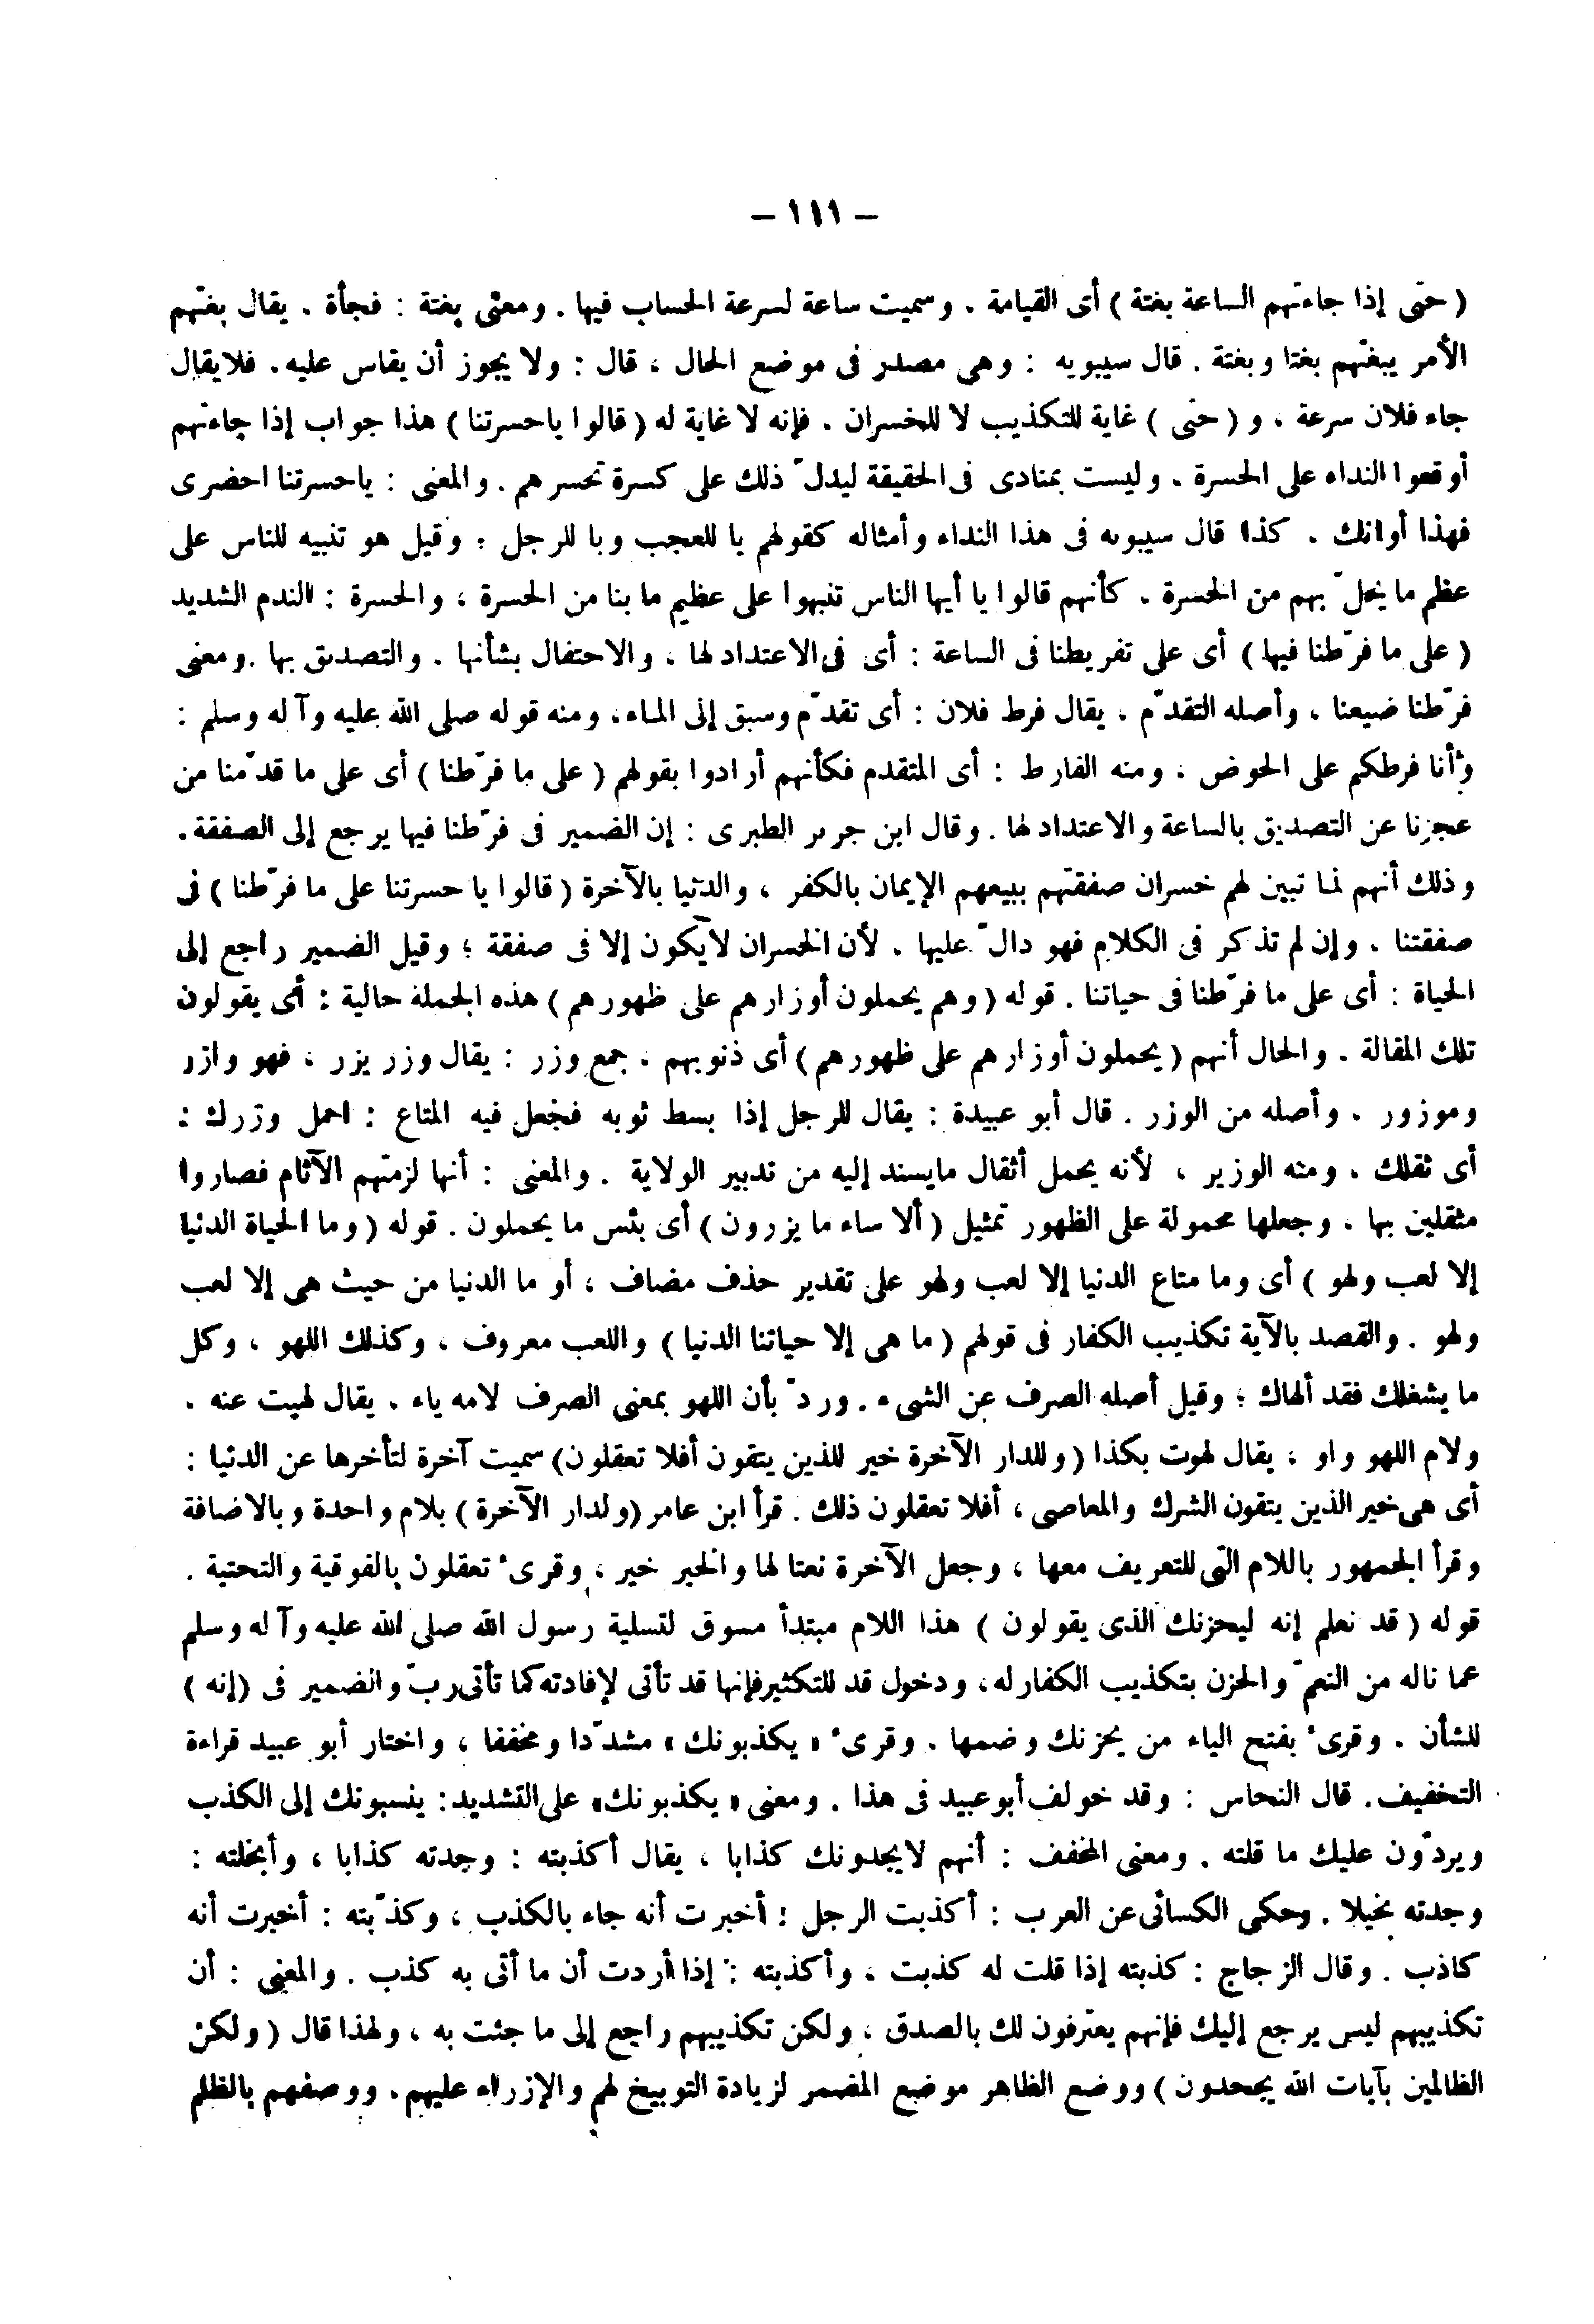 – ١١١ –
( حتى إذا جاءتهم الساعة بغتة ) أى القيامة ، وسميت ساعة لسرعة الحساب فيها . ومعنى بغتة : فجأة ، يقال بغتهم
الأمر يبغتهم بغتا وبغتة . قال سيبويه : وهى مصدر فى موضع الحال ، قال : ولا يجوز أن يقاس عليه ، فلا يقال
جاء فلان سرعة ، و ( حتى ) غاية للتكذيب لا للخسران ، فإنه لا غاية له ( قالوا ياحسرتنا ) هذا جواب إذا جاءتهم
أوقعوا النداء على الحسرة ، وليست بمنادى فى الحقيقة ليدلّ ذلك على كسرة تحسرهم . والمعنى : ياحسرتنا احضرى
فهذا أوانك . كذا قال سيبويه فى هذا النداء وأمثاله كقولهم يا للعجب ويا للرجل ؛ وقيل هو تنبيه للناس على
عظم ما يحلّ بهم من الحسرة ، كأنهم قالوا يا أيها الناس تنبهوا على عظيم ما بنا من الحسرة ، والحسرة : الندم الشديد
( على ما فرّطنا فيها ) أى على تفريطنا فى الساعة : أى فى الاعتداد لها ، والاحتفال بشأنها ، والتصديق بها . ومعنى
فرّطنا ضيعنا ، وأصله التقدّم ، يقال فرط فلان : أى تقدّم وسبق إلى الماء ، ومنه قوله صلى الله عليه وآله وسلم :
وأنا فرطكم على الحوض ، ومنه الفارط : أى المتقدم فكأنهم أرادوا بقولهم ( على ما فرّطنا ) أى على ما قدّمنا من
عجزنا عن التصديق بالساعة والاعتداد لها . وقال ابن جرير الطبرى : إن الضمير فى فرّطنا فيها يرجع إلى الصفقة ،
وذلك أنهم لما تبين لهم خسران صفقتهم ببيعهم الإيمان بالكفر ، والدنيا بالآخرة ( قالوا يا حسرتنا على ما فرّطنا ) فى
صفقتنا ، وإن لم تذكر فى الكلام فهو دالّ عليها ، لأن الخسران لا يكون إلا فى صفقة ؛ وقيل الضمير راجع إلى
الحياة : أى على ما فرّطنا فى حياتنا . قوله ( وهم يحملون أوزارهم على ظهورهم ) هذه الجملة حالية : أى يقولون
تلك المقالة ، والحال أنهم ( يحملون أوزارهم على ظهورهم ) أى ذنوبهم ، جمع وزر : يقال وزر يزر ، فهو وازر
وموزور ، وأصله من الوزر . قال أبو عبيدة : يقال للرجل إذا بسط ثوبه فجعل فيه المتاع : احمل وزرك :
أى ثقلك ، ومنه الوزير ، لأنه يحمل أثقال مايسند إليه من تدبير الولاية . والمعنى : أنها لزمتهم الآثام فصاروا
مثقلين بها ، وجعلها محمولة على الظهور تمثيل ( ألا ساء ما يزرون ) أى بئس ما يحملون . قوله ( وما الحياة الدنيا
إلا لعب ولهو ) أى وما متاع الدنيا إلا لعب ولهو على تقدير حذف مضاف ، أو ما الدنيا من حيث هى إلا لعب
ولهو . والقصد بالآية تكذيب الكفار فى قولهم ( ما هى إلا حياتنا الدنيا ) واللعب معروف ، وكذلك اللهو ، وكل
ما يشغلك فقد ألهاك ؛ وقيل أصله الصرف عن الشىء . وردّ بأن اللهو بمعنى الصرف لامه ياء ، يقال لهيت عنه ،
ولام اللهو واو ، يقال لهوت بكذا ( وللدار الآخرة خير للذين يتقون أفلا تعقلون ) سميت آخرة لتأخرها عن الدنيا :
أى هى خير الذين يتقون الشرك والمعاصى ، أفلا تعقلون ذلك . قرأ ابن عامر ( ولدار الآخرة ) بلام واحدة وبالاضافة
وقرأ الجمهور باللام التى للتعريف معها ، وجعل الآخرة نعتا لها والخبر خير ، وقرىء تعقلون بالفوقية والتحتية .
قوله ( قد نعلم إنه ليحزنك الذى يقولون ) هذا اللام مبتدأ مسوق لتسلية رسول الله صلى الله عليه وآله وسلم
عما ناله من الغمّ والحزن بتكذيب الكفار له ، ودخول قد للتكثير فإنها قد تأتى لإفادته كما تأتى ربّ والضمير فى ( إنه )
للشأن . وقرىء بفتح الياء من يحزنك وضمها . وقرىء « يكذبونك » مشدّدا ومخففا ، واختار أبو عبيد قراءة
التخفيف . قال النحاس : وقد خولف أبو عبيد فى هذا . ومعنى « يكذبونك » على التشديد : ينسبونك إلى الكذب
ويردّون عليك ما قلته . ومعنى المخفف : أنهم لايجدونك كذابا ، يقال أكذبته : وجدته كذابا ، وأبخلته :
وجدته بخيلا . وحكى الكسائى عن العرب : أكذبت الرجل : أخبرت أنه جاء بالكذب ، وكذّبته : أخبرت أنه
كاذب . وقال الزجاج : كذبته إذا قلت له كذبت ، وأكذبته : إذا أردت أن ما أتى به كذب . والمعنى : أن
تكذيبهم ليس يرجع إليك فإنهم يعترفون لك بالصدق ، ولكن تكذيبهم راجع إلى ما جئت به ، ولهذا قال ( ولكن
الظالمين بآيات الله يجحدون ) ووضع الظاهر موضع المضمر لزيادة التوبيخ لهم والإزراء عليهم ، ووصفهم بالظلم